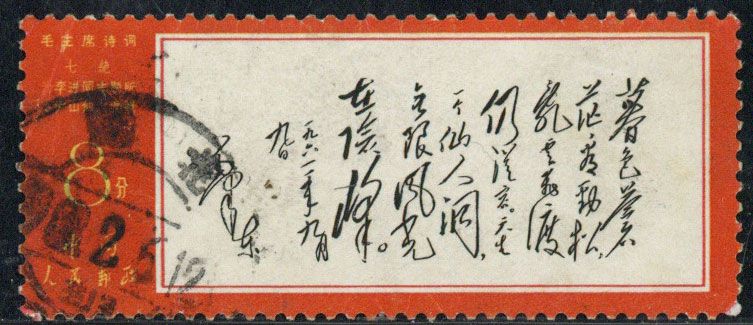 毛主席诗词
七绝
李进同志题所
山
8分
人民邮政
2
12
暮色苍
茫看劲松
乱云飞渡
仍从容。天生
一个仙人洞，
无限风光
在险峰。
一九六一年九月
九日
毛泽东